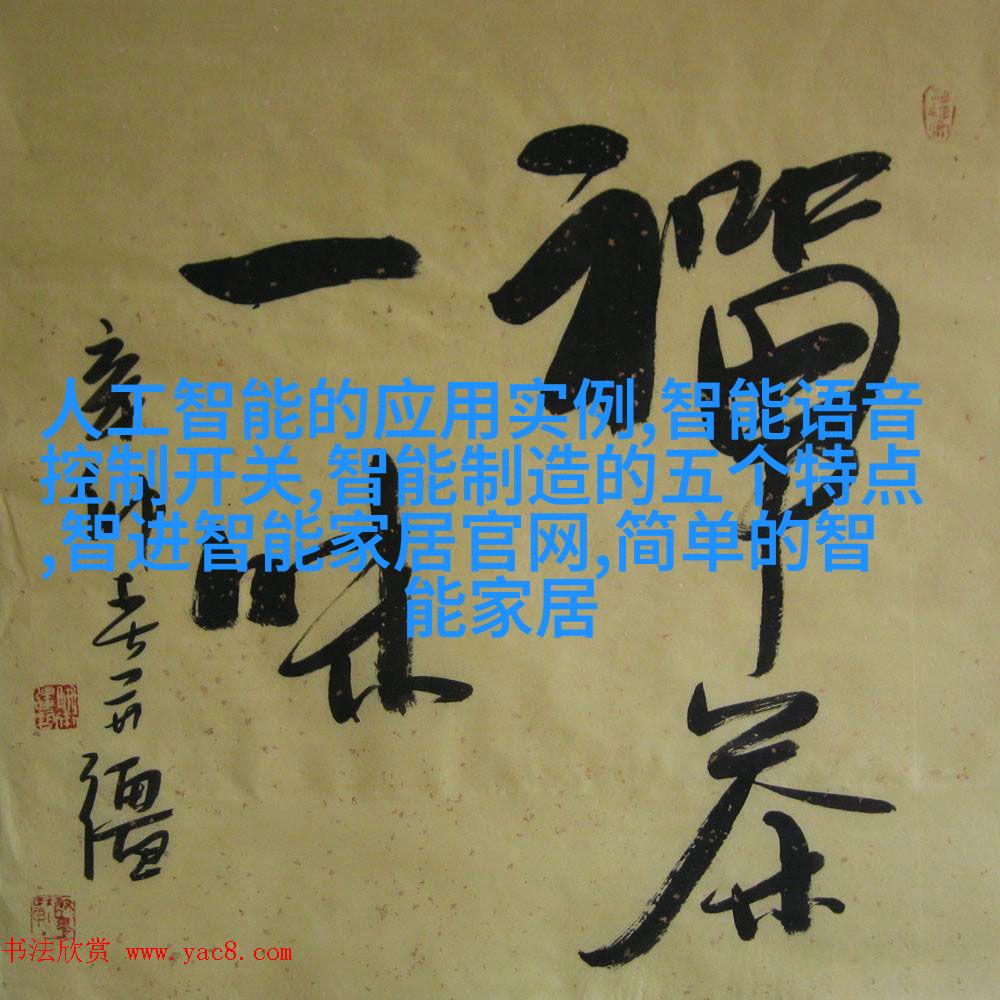 禅茶
一味
人工智能的应用实例,智能语音
控制开关,智能制造的五个特点
,智进智能家居官网,简单的智
能家居
书法欣赏 www.yac8.com